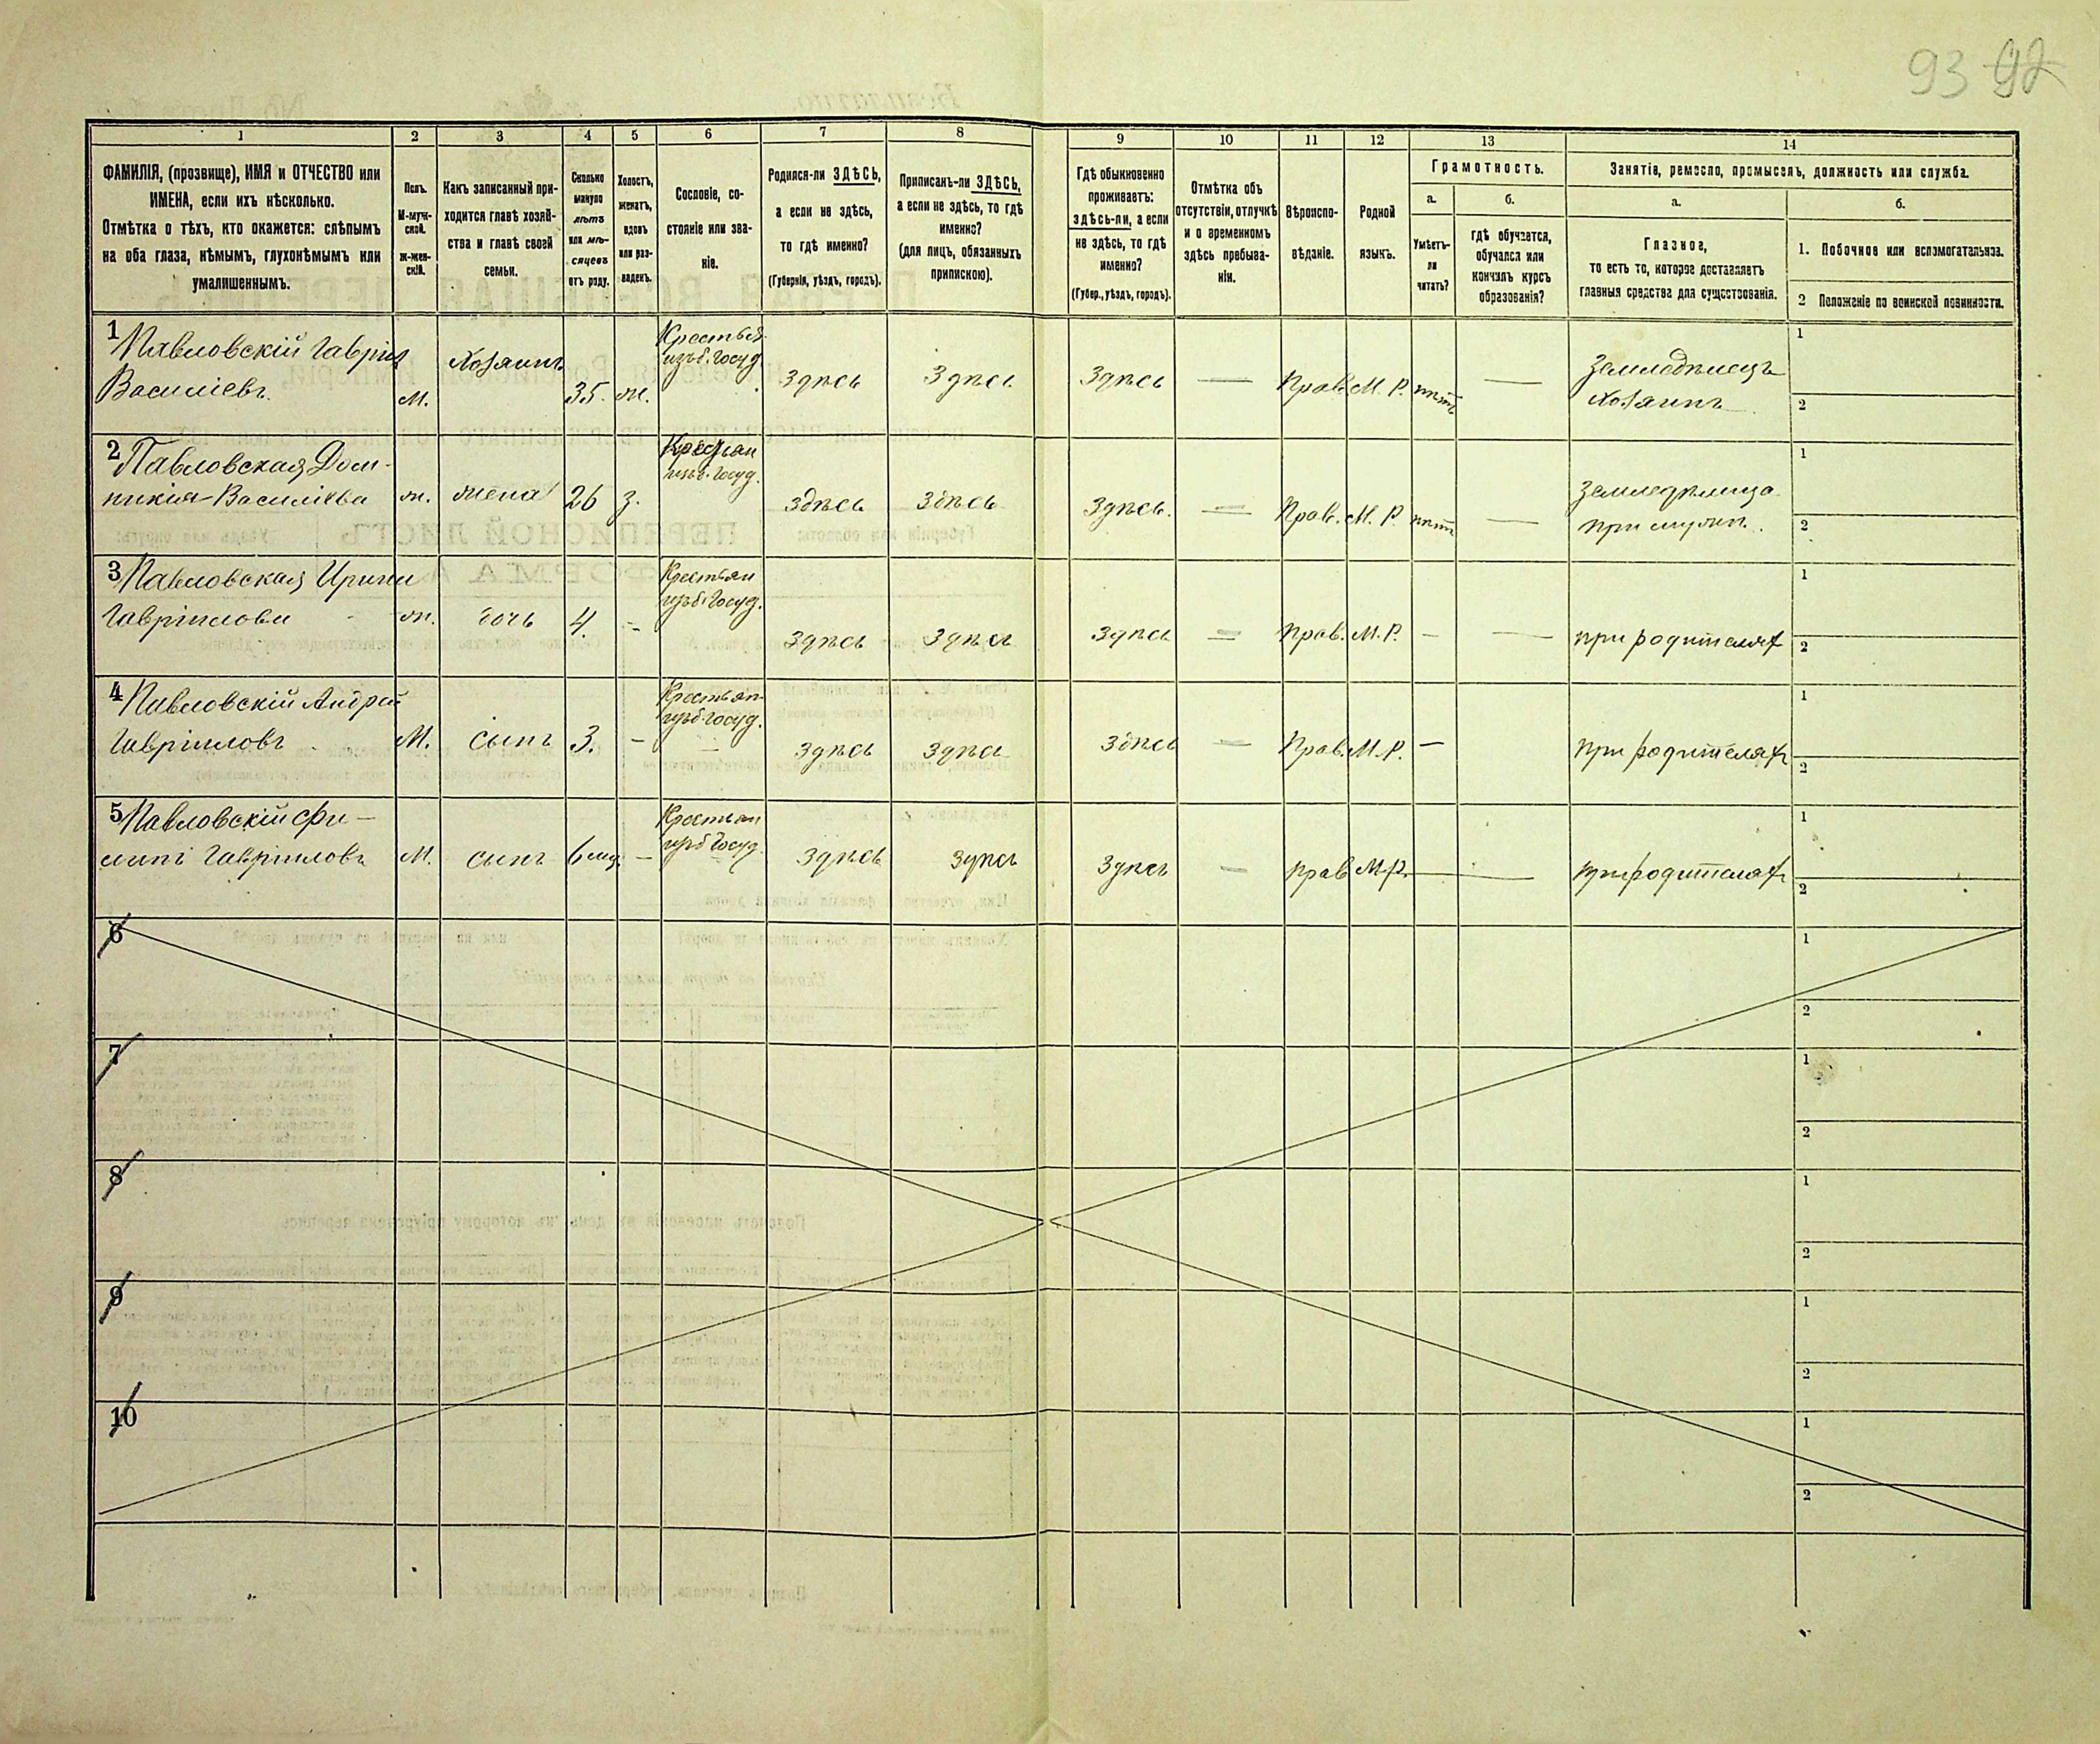 93 92
1 2 3 4 5 6 7 8 9 10 11 12 13 14
ФАМИЛІЯ, (прозвище), ИМЯ и ОТЧЕСТВО или
ИМЕНА, если ихъ нѣсколько.
Отмѣтка о тѣхъ, кто окажется: слѣпымъ
на оба глаза, нѣмымъ, глухонѣмымъ или
умалишеннымъ.
Полъ.
М-муж-
ской.
ж-жен-
скій.
Какъ записанный при-
ходится главѣ хозяй-
ства и главѣ своей
семьи.
Сколько
минуло
лѣтъ
или мѣ-
сяцевъ
отъ роду.
Холостъ,
женатъ,
вдовъ
или раз-
веденъ.
Сословіе, со-
стояніе или зва-
ніе.
Родился-ли ЗДѢСЬ,
а если не здѣсь,
то гдѣ именно?
(Губернія, уѣздъ, городъ).
Приписанъ-ли ЗДѢСЬ,
а если не здѣсь, то гдѣ
именно?
(для лицъ, обязанныхъ
припискою).
Гдѣ обыкновенно
проживаетъ:
здѣсь-ли, а если
не здѣсь, то гдѣ
именно?
(Губер., уѣздъ, городъ).
Отмѣтка объ
отсутствіи, отлучкѣ
и о временномъ
здѣсь пребыва-
ніи.
Вѣроиспо-
вѣданіе.
Родной
языкъ.
Грамотность.
а.
Умѣетъ-
ли
читать?
б.
гдѣ обучается,
обучался или
кончилъ курсъ
образованія?
Занятіе, ремесло, промыселъ, должность или служба.
а.
Главное,
то есть то, которое доставляетъ
главныя средства для существованія.
б.
1. Побочное или вспомогательное.
2 Положеніе по воинской повинности.
1 Павловскій Гавріил
Василіевъ.
м.
Хозяинъ
35. ж.
Крестьян
изъ б. госуд.
Здѣсь Здѣсь Здѣсь — Прав. М. Р. нѣтъ —
Земледѣлецъ
Хозяинъ
1
2
2 Павловская Дом-
никія Василіева
ж. жена 26 з.
Крестьян
изъ б. госуд.
Здѣсь Здѣсь Здѣсь. — Прав. М. Р. нѣтъ —
Земледѣлица
при мужѣ.
1
2
3 Павловская Ирина
Гавріилова
ж. дочь 4. -
Крестьян
изъ б. госуд.
Здѣсь Здѣсь Здѣсь — Прав. М. Р. — —
при родителях
1
2
4 Павловскій Андрей
Гавріиловъ
М. сынъ 3. -
Крестьян
изъ б. госуд.
Здѣсь Здѣсь Здѣсь — Прав. М. Р. —
при родителях
1
2
5 Павловскій Фи-
липъ Гавріиловъ
М. сынъ 6 мѣс. —
Крестьян
изъ б госуд.
Здѣсь Здѣсь Здѣсь — Прав М. Р. —
при родителях
1
2
6
1
2
7
1
2
8
1
2
9
1
2
10
1
2